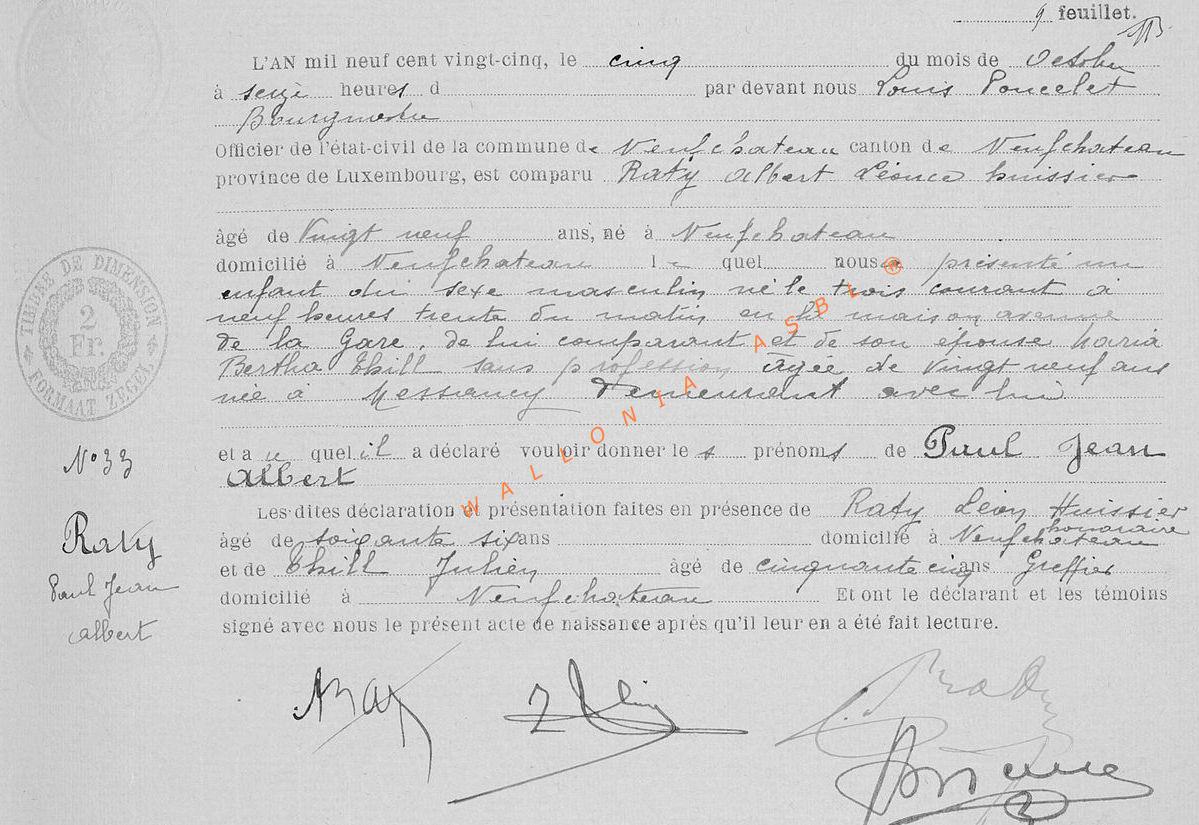 9 feuillet.
L'AN mil neuf cent vingt-cinq, le cinq du mois de Octobre
à seize heures d par devant nous Louis Poncelet
Bourgmestre
Officier de l'état-civil de la commune de Neufchateau canton de Neufchateau
province de Luxembourg, est comparu Raty Albert Léonce huissier
âgé de Vingt neuf ans, né à Neufchateau
domicilié à Neufchateau le quel nous a présenté un
enfant du sexe masculin né le trois courant à
neuf heures trente du matin en la maison avenue
de la Gare, de lui comparant et de son épouse Maria
Bertha Thill sans profession âgée de Vingt neuf ans
née à Messancy demeurant avec lui
et au quel il a déclaré vouloir donner les prénoms de Paul Jean
Albert
Les dites déclaration et présentation faites en présence de Raty Léon Huissier
honoraire
âgé de soixante six ans domicilié à Neufchateau
et de Thill Julien âgé de cinquante cinq ans Greffier
domicilié à Neufchateau Et ont le déclarant et les témoins
signé avec nous le présent acte de naissance après qu'il leur en a été fait lecture.
TIMBRE DE DIMENSION
2
Fr.
FORMAAT ZEGEL
N° 33
Raty
Paul Jean
Albert
WALLONIA ASBL ®